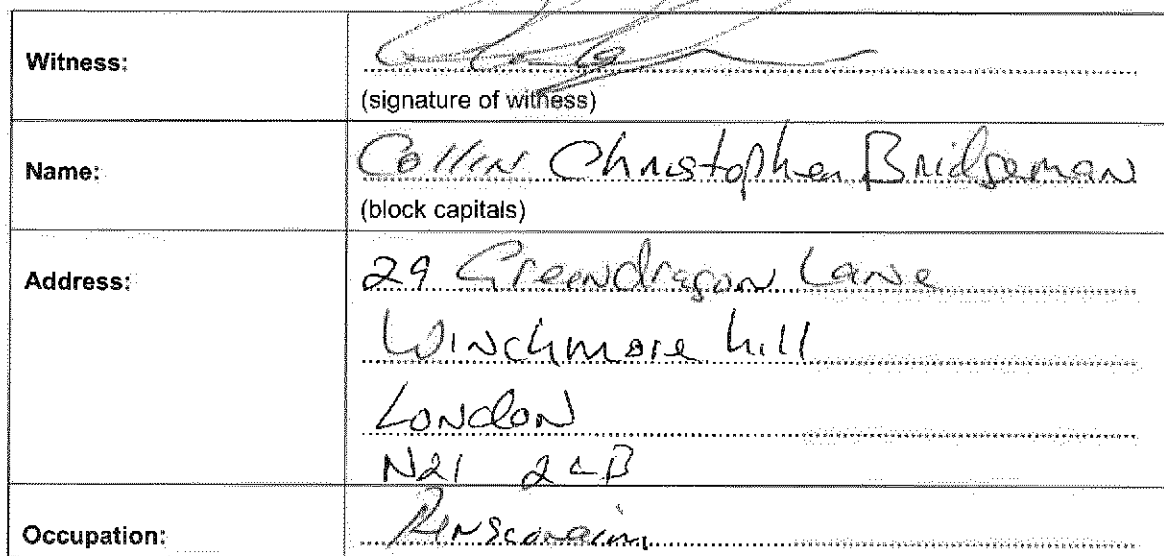 Witness:
(signature of witness)
Name:
Collin Christopher Bridgeman
(block capitals)
Address:
29 Greendragon Lane
Winchmore hill
London
N21 2LB
Occupation: